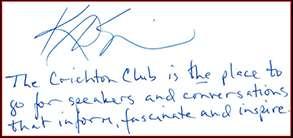 The Crichton Club is the place to
go for speakers and conversations
that inform, fascinate and inspire.